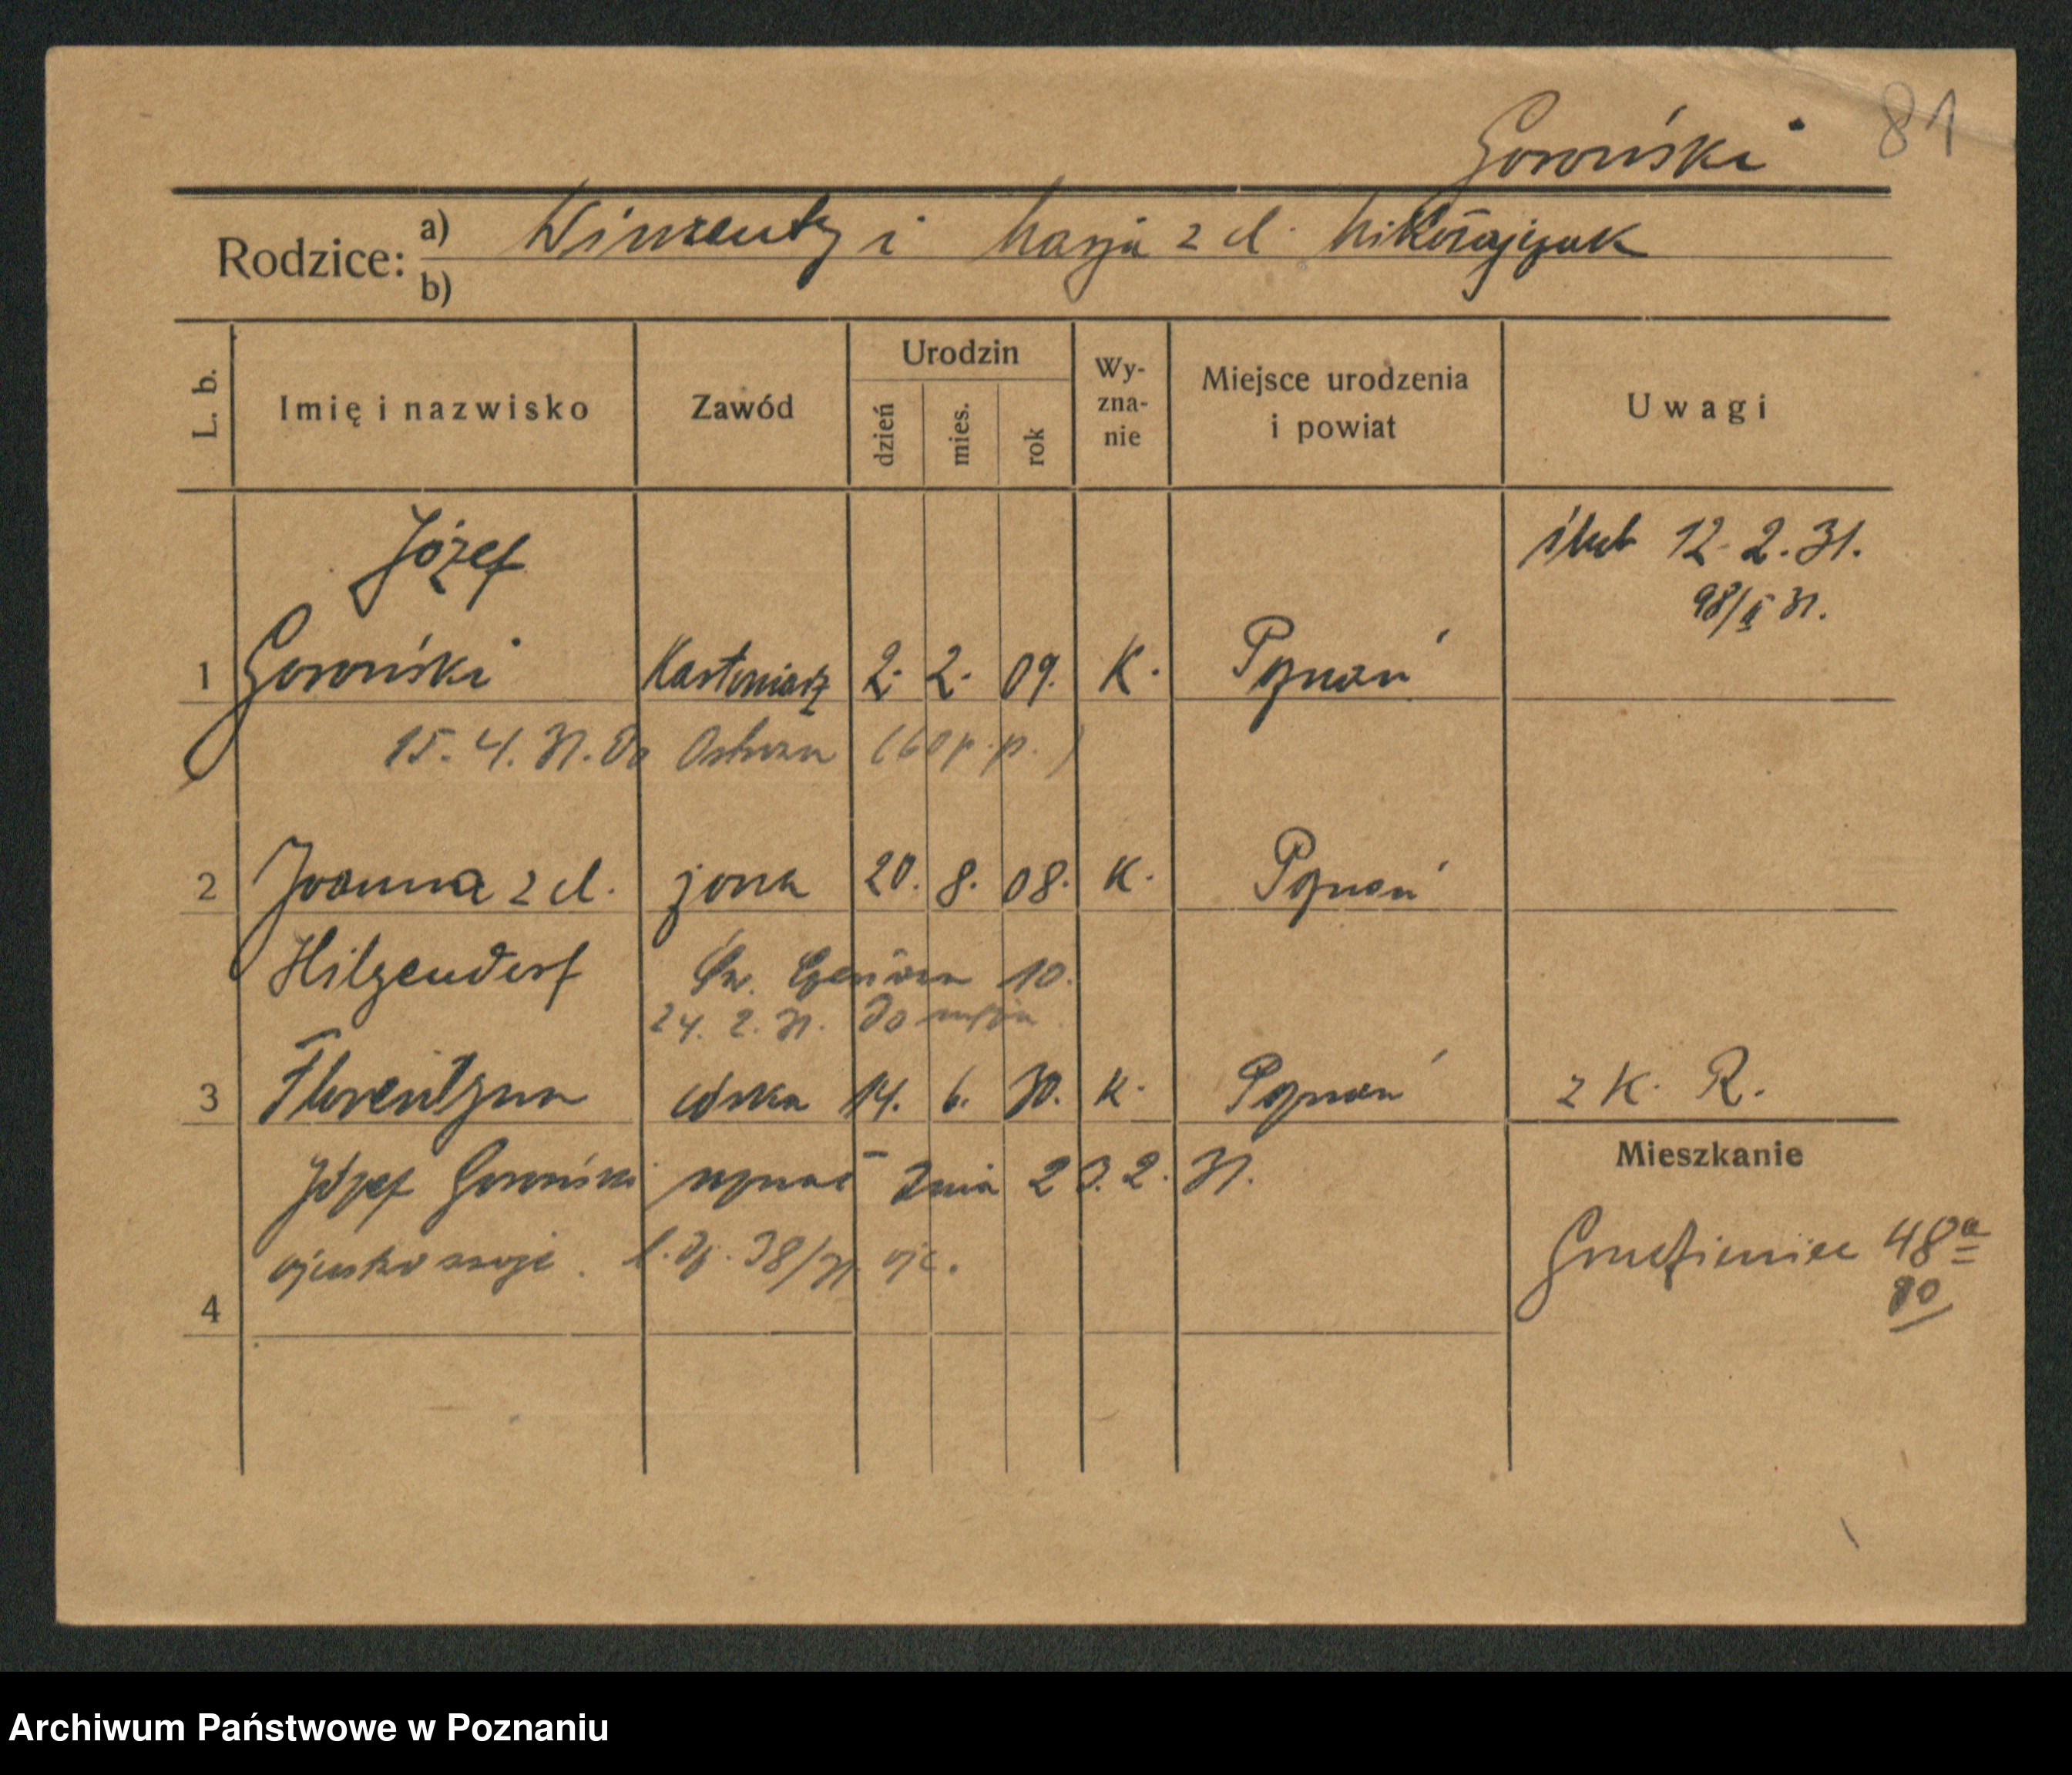 81
Goroński
Rodzice: a) Winzenty i Marja z d. Mikołajczak
b)
L. b. Imię i nazwisko Zawód Urodzin dzień mies. rok Wy-zna-nie Miejsce urodzenia i powiat Uwagi
Józef
ślub 12. 2. 31.
98/II 31.
1 Goroński Kartoniarz 2. 2. 09. K. Poznań
15. 4. 31. do Ostrowa (60 p. p.)
2 Joanna z d. żona 20. 8. 08. K. Poznań
Hilgendorf Św. 10.
24. 2. 31. do męża
3 Florentyna córka 14. 6. 30. K. Poznań z K. R.
Józef Goroński uznał dnia 20. 2. 31.
Mieszkanie
ojcostwo swoje. l. dz. 38/31 ojc.
Grudzieniec 48a
80
4
Archiwum Państwowe w Poznaniu